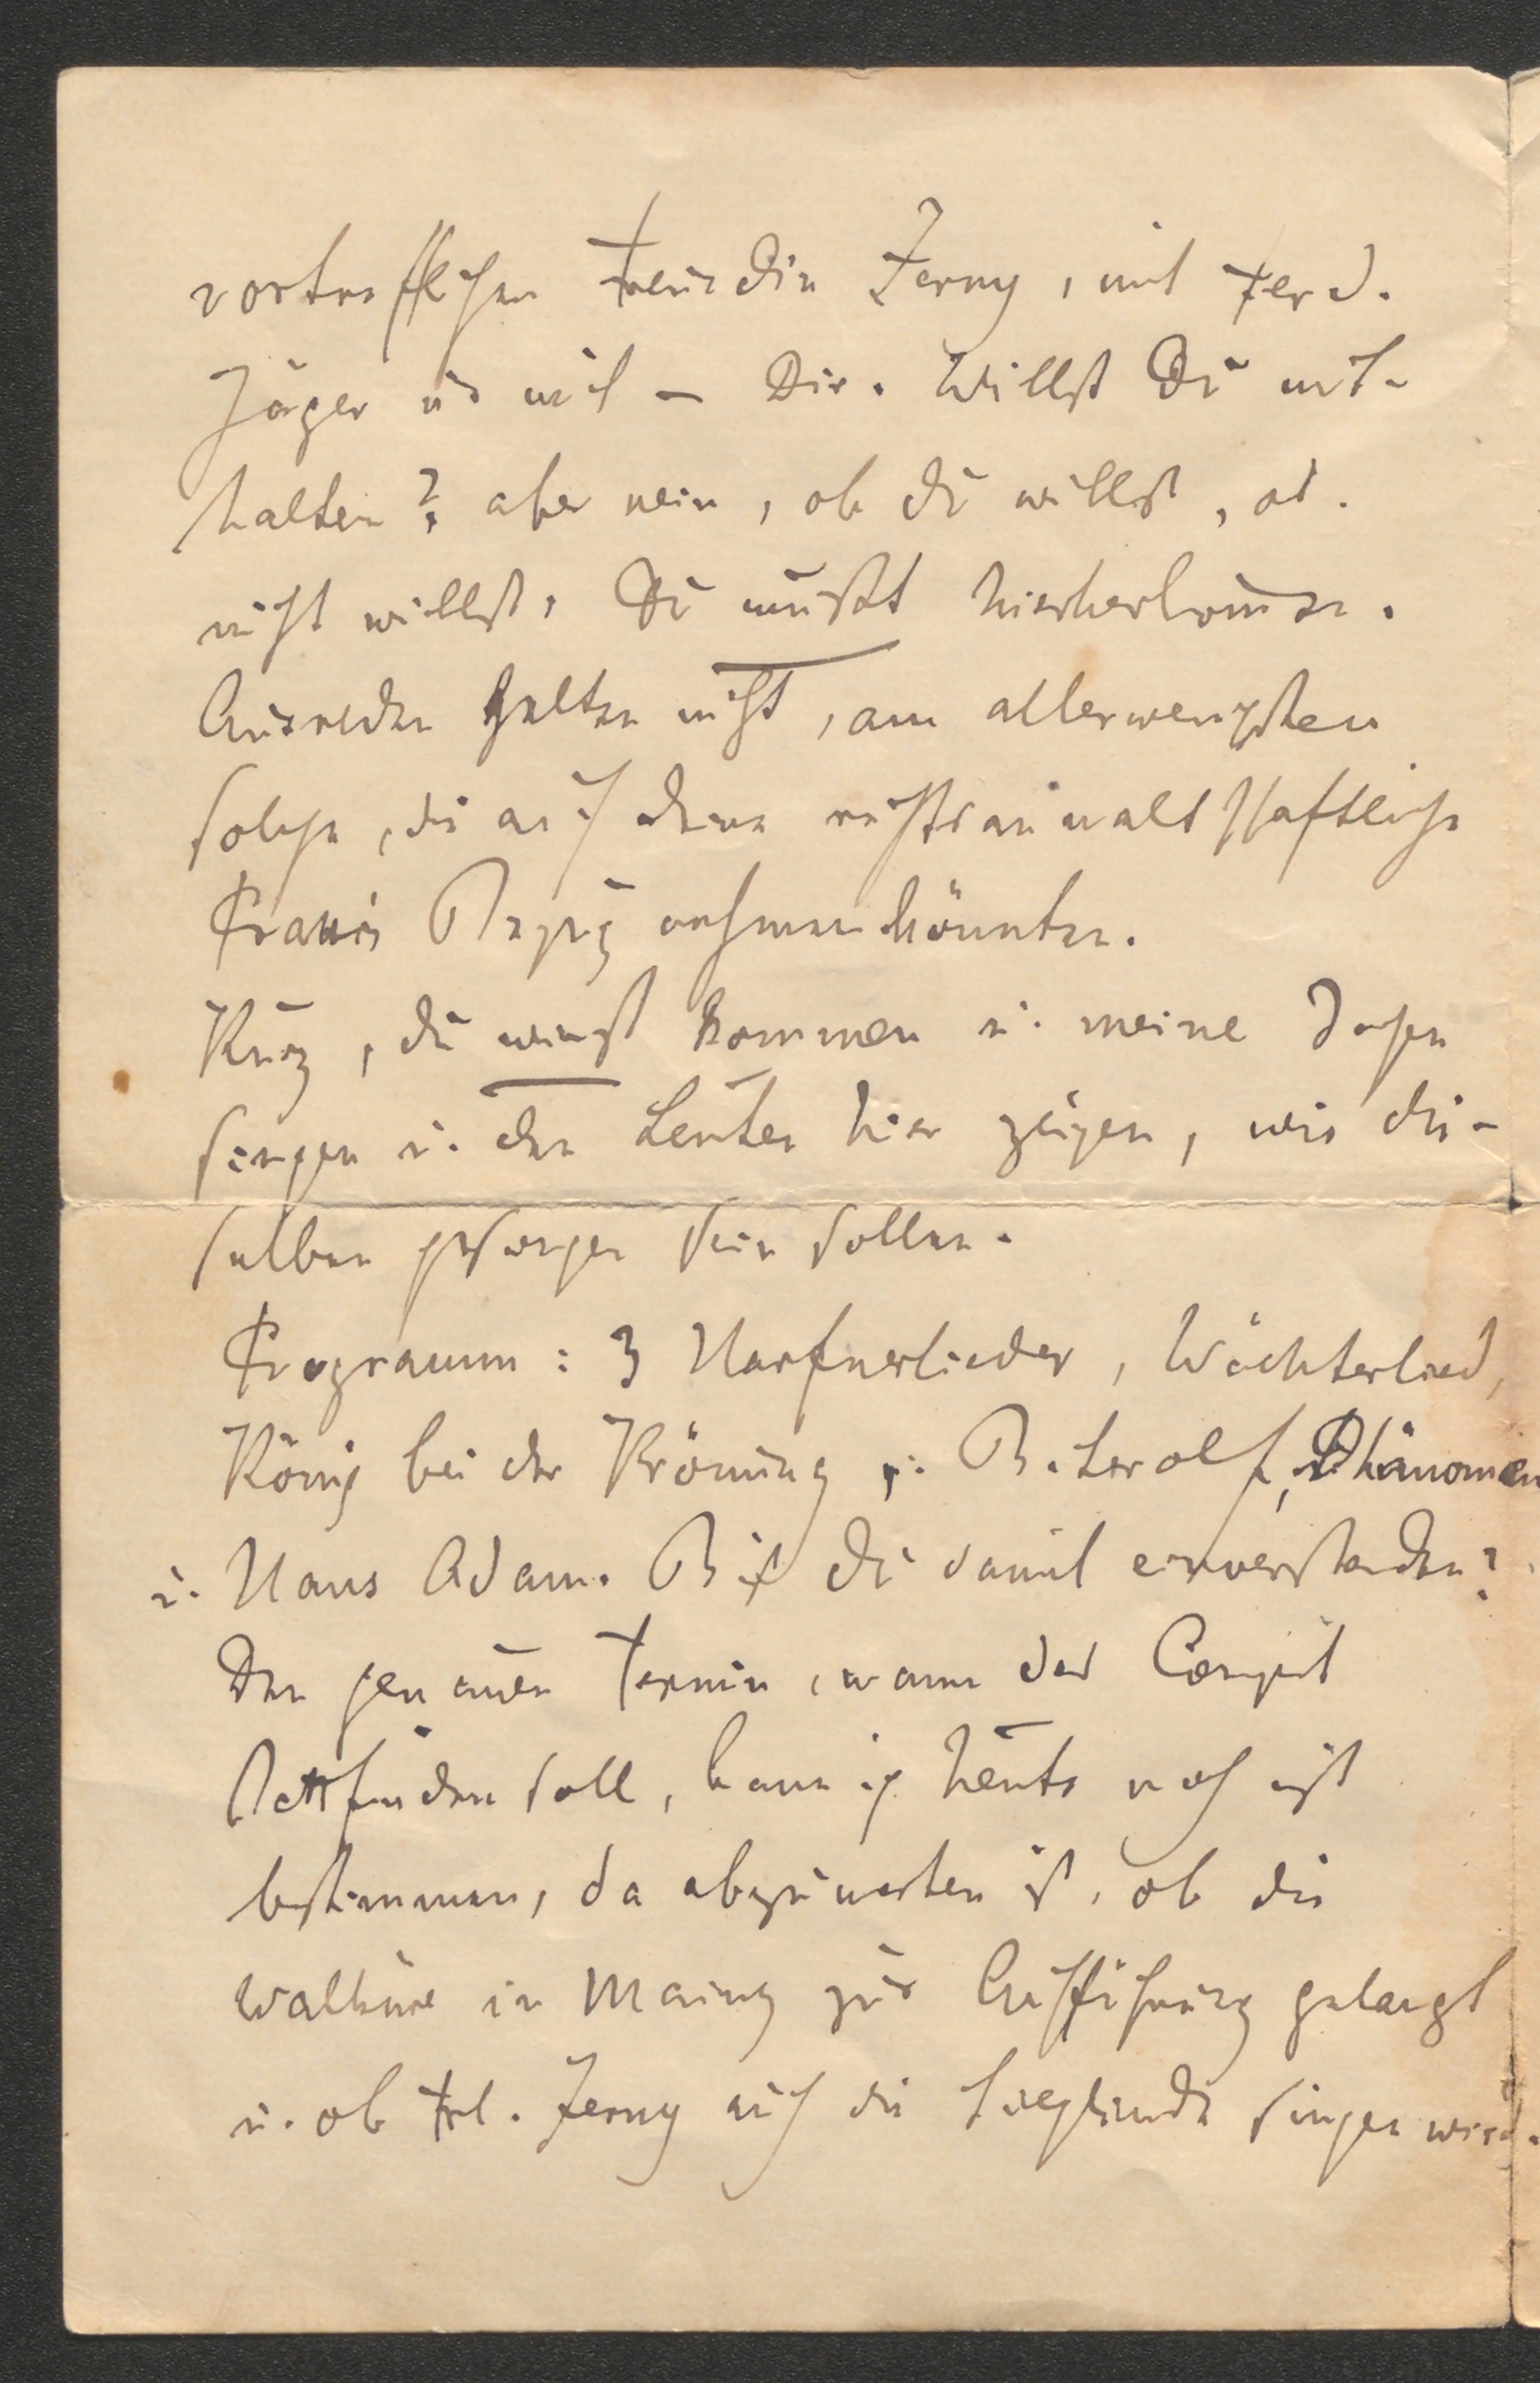 vortrefflichen Freundin Zerny, mit Ferd.
Jäger und mit – Dir. Willst Du mit-
halten? aber nein, ob Du willst, od.
nicht willst, Du mußt hierherkommen.
Ausreden gelten nicht, am allerwenigsten
solche, die auf Deine rechtsanwaltschaftliche
Praxis Bezug nehmen könnten.
Kurz, Du wirst kommen u. meine Sachen
singen u. den Leuten hier zeigen, wie die-
selben gesungen sein sollen.
Programm: 3 Harfnerlieder, Wächterlied,
König bei der Krönung, Biterolf, Phänomen
u. Hans Adam. Bist Du damit einverstanden?
Den genauen Termin, wann das Conzert
stattfinden soll, kann ich heute noch nicht
bestimmen, da abzuwarten ist, ob die
Walküre in Mainz zur Aufführung gelangt
u. ob Frl. Zerny auch die Sieglinde singen wird.